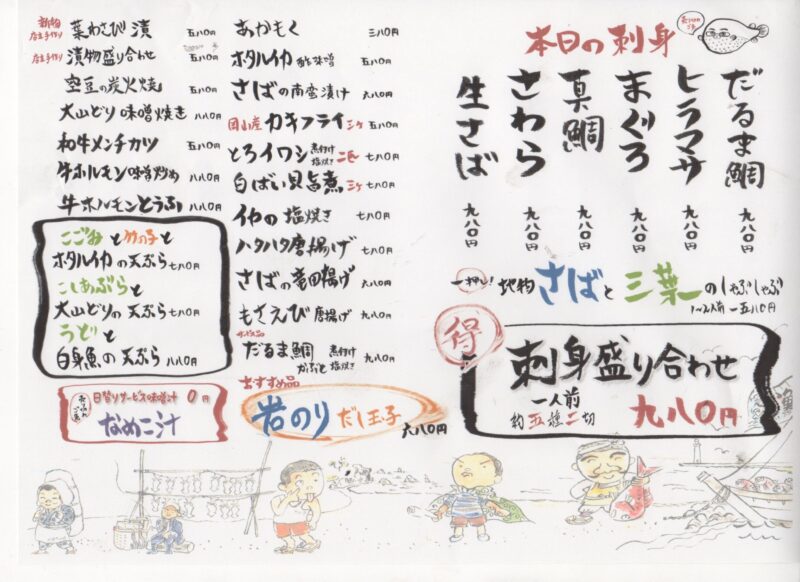 本日の刺身
だるま鯛 九八〇円
ヒラマサ 九八〇円
まぐろ 九八〇円
真鯛 九八〇円
さわら 九八〇円
生さば 九八〇円
一押し! 地物 さばと三葉のしゃぶしゃぶ
1〜2人前 一五八〇円
得
刺身盛り合わせ
一人前
約五種二切 九八〇円
あかもく 三八〇円
ホタルイカ 酢味噌 五八〇円
さばの南蛮漬け 六八〇円
国産 カキフライ 三ケ 五八〇円
とろイワシ 煮付け 塩焼き 二匹 七八〇円
白ばい貝旨煮 三ケ 七八〇円
イカの塩焼き 七八〇円
ハタハタ唐揚げ 七八〇円
さばの竜田揚げ 八八〇円
もさえび 唐揚げ 九八〇円
サービス品
だるま鯛 かぶと 煮付け 塩焼き 九八〇円
おすすめ品
岩のり だし玉子 六八〇円
店主手作り 葉わさび漬 五八〇円
店主手作り 漬物盛り合わせ 五八〇円
空豆の炭火焼 五八〇円
大山どり味噌焼き 八八〇円
和牛メンチカツ 五八〇円
牛ホルモン味噌炒め 八八〇円
牛ホルモンとうふ 八八〇円
こごみと竹の子と
ホタルイカの天ぷら 七八〇円
こしあぶらと
大山どりの天ぷら 七八〇円
うどと
白身魚の天ぷら 八八〇円
日替りサービス味噌汁 0円
なめこ汁